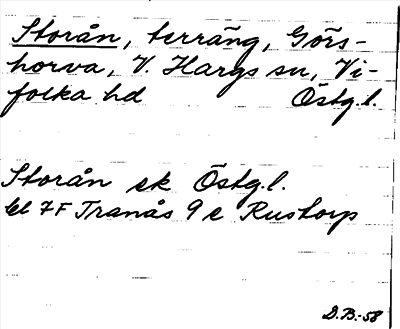 Storån, terräng, Görs-
horva, V. Hargs sn, Vi-
folka hd Östg.l.
Storån ek Östg.l.
bl 7F Tranås 9 e Rustorp
D.B.-58